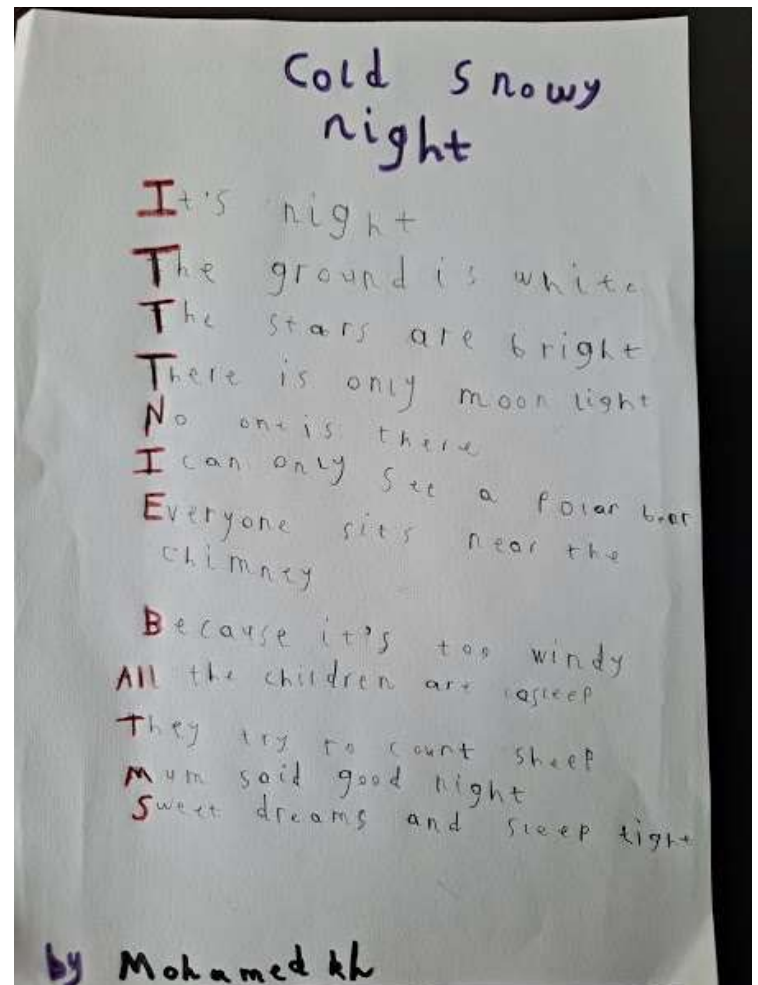 Cold Snowy
night
It's night
The ground is white
The stars are bright
There is only moon light
No one is there
I can only see a Polar bear
Everyone sits near the
chimney
Because it's too windy
All the children are asleep
They try to count sheep
Mum said good night
Sweet dreams and sleep tight
by Mohamed kh